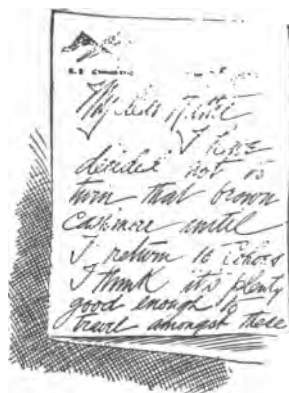 S.S.
My dear Mattie
I have
decided not to
turn that brown
cashmere until
I return to
I think it's plenty
good enough to
travel amongst these